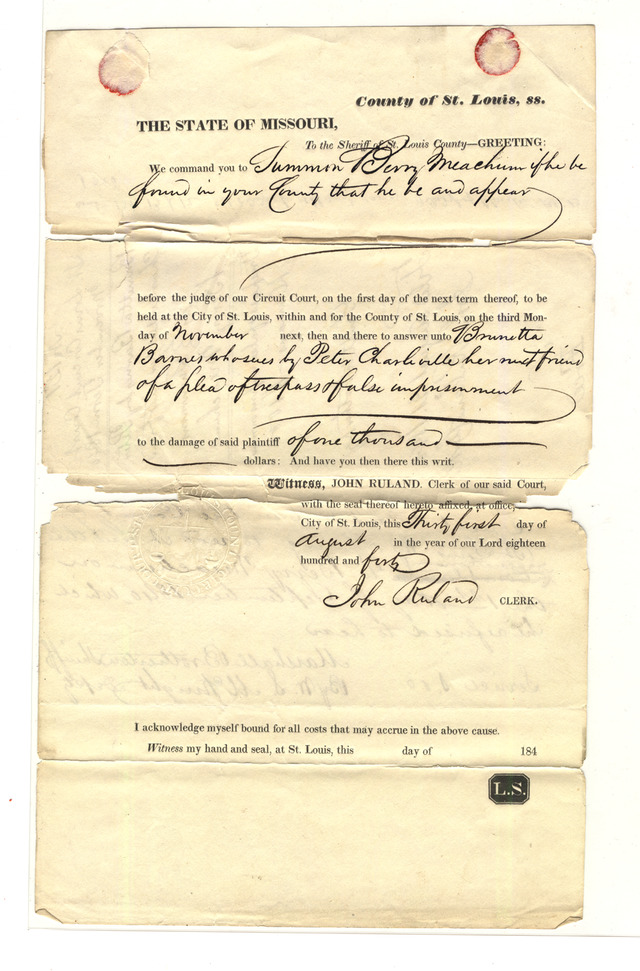 County of St. Louis, ss.
THE STATE OF MISSOURI,
To the Sheriff of St. Louis County—GREETING:
We command you to Summon Berry Meachum if he be
found in your County that he be and appear
before the judge of our Circuit Court, on the first day of the next term thereof, to be
held at the City of St. Louis, within and for the County of St. Louis, on the third Mon-
day of November next, then and there to answer unto Brunetta
Barnes who sues by Peter Charleville her next friend
of a plea of trespass & false imprisonment
to the damage of said plaintiff of one thousand
dollars: And have you then there this writ.
Witness, JOHN RULAND. Clerk of our said Court,
with the seal thereof hereto affixed, at office,
City of St. Louis, this Thirty first day of
August in the year of our Lord eighteen
hundred and forty
John Ruland CLERK.
I acknowledge myself bound for all costs that may accrue in the above cause.
Witness my hand and seal, at St. Louis, this day of 184
L.S.